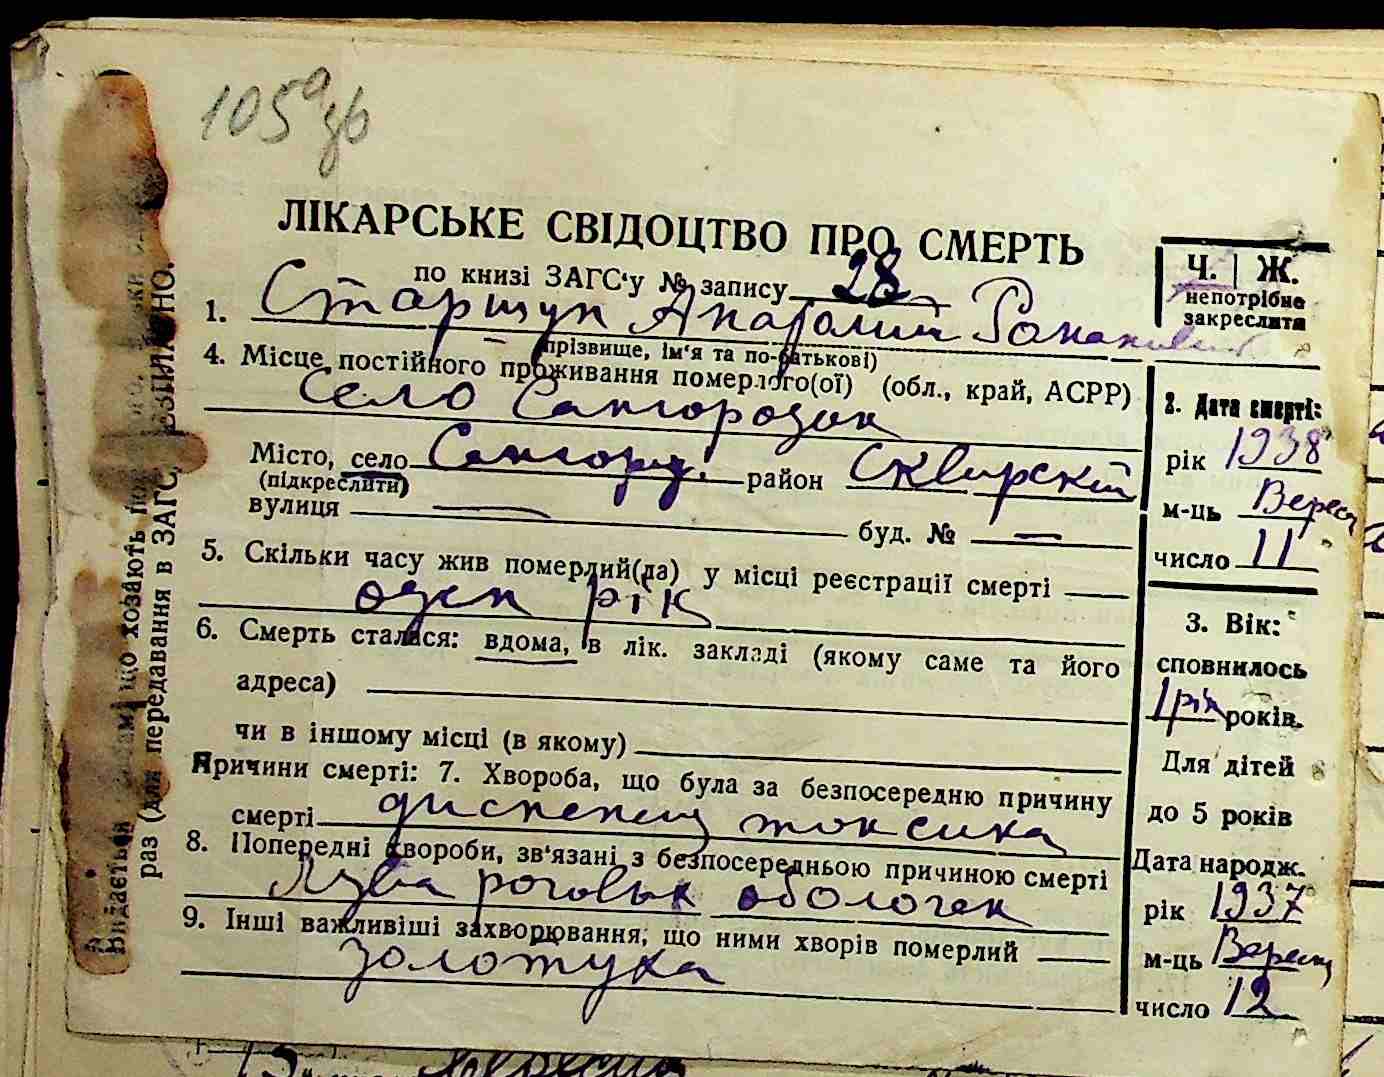 105 а зв
ЛІКАРСЬКЕ СВІДОЦТВО ПРО СМЕРТЬ
по книзі ЗАГС'у № запису 28
Ч. | Ж.
непотрібне
закреслити
1. Старщук Анатолий Романович
(прізвище, ім'я та по-батькові)
4. Місце постійного проживання померлого(ої) (обл., край, АСРР)
Село Сангородок
Місто, село район Сквирскій
(підкреслити)
вулиця — буд. № —
5. Скільки часу жив померлий(ла) у місці реєстрації смерті
один рік
6. Смерть сталася: вдома, в лік. закладі (якому саме та його
адреса)
чи в іншому місці (в якому)
Причини смерті: 7. Хвороба, що була за безпосередню причину
смерті диспепсия токсика
8. Попередні хвороби, зв'язані з безпосередньою причиною смерті
Язва роговых оболочек
9. Інші важливіші захворювання, що ними хворів померлий
золотуха
2. Дата смерті:
рік 1938
м-ць Вересн
число 11
3. Вік:
сповнилось
1 рік років.
Для дітей
до 5 років
Дата народж.
рік 1937
м-ць Вересн
число 12
раз (для передавання в ЗАГС,